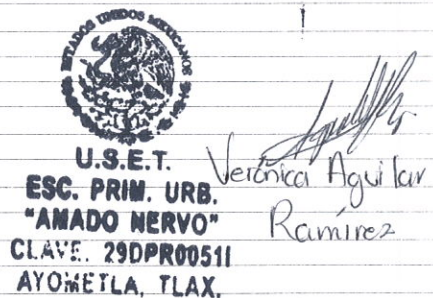 ESTADOS UNIDOS MEXICANOS
U.S.E.T.
ESC. PRIM. URB.
"AMADO NERVO"
CLAVE. 29DPR0051I
AYOMETLA, TLAX.
Verónica Aguilar
Ramírez